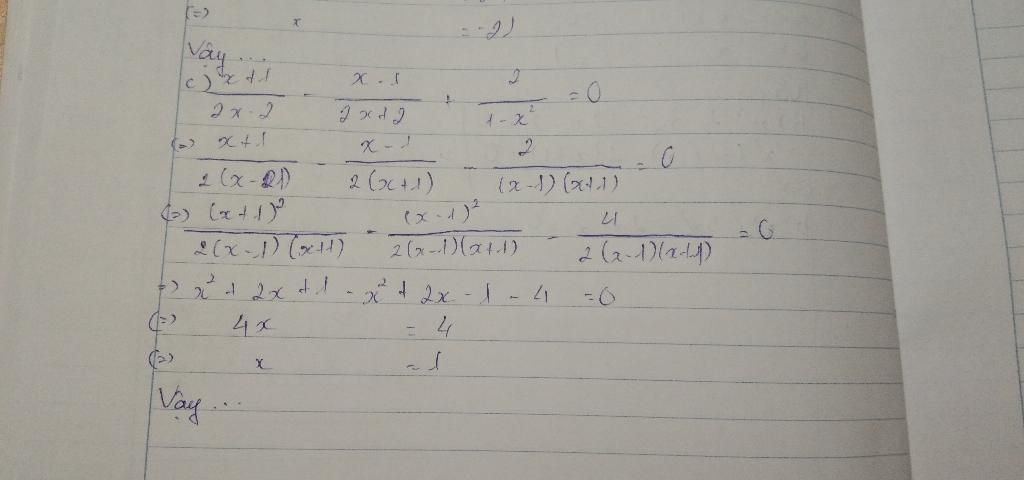 (=) x = -21
Vậy ...
c) x+1/2x-2 - x-1/2x+2 + 2/1-x² = 0
(=) x+1/2(x-1) - x-1/2(x+1) - 2/(x-1)(x+1) = 0
(=) (x+1)²/2(x-1)(x+1) - (x-1)²/2(x-1)(x+1) - 4/2(x-1)(x+1) = 0
=) x² + 2x + 1 - x² + 2x - 1 - 4 = 0
(=) 4x = 4
(=) x = 1
Vậy ...